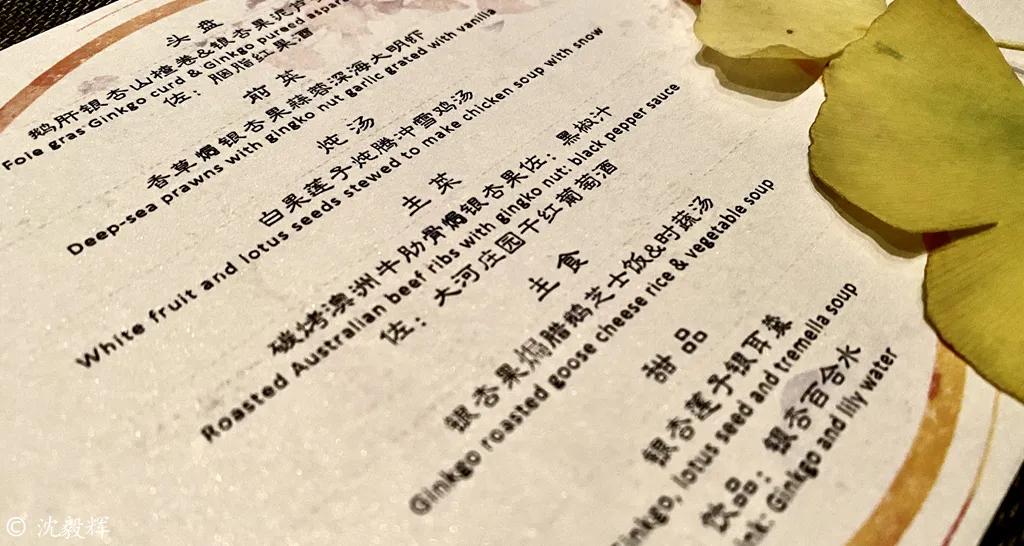 头盘
鹅肝银杏山楂卷&银杏果芦
Foie gras Ginkgo curd & Ginkgo pureed aspara
佐：胭脂红果酒
前菜
香草焗银杏果蒜蓉深海大明虾
Deep-sea prawns with gingko nut garlic grated with vanilla
炖汤
白果莲子炖腾冲雪鸡汤
White fruit and lotus seeds stewed to make chicken soup with snow
主菜
碳烤澳洲牛肋骨焗银杏果佐：黑椒汁
Roasted Australian beef ribs with gingko nut: black pepper sauce
佐：大河庄园干红葡萄酒
主食
银杏果焗腊鹅芝士饭&时蔬汤
Ginkgo roasted goose cheese rice & vegetable soup
甜品
银杏莲子银耳羹
inkgo, lotus seed and tremella soup
饮品：银杏百合水
ink: Ginkgo and lily water
© 沈毅辉